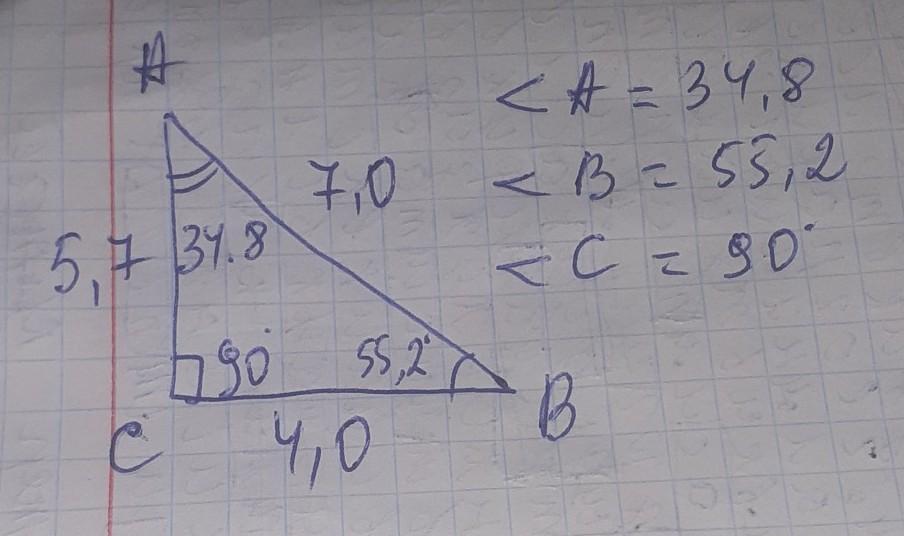 A
< A = 34,8
7,0
< B = 55,2
5,7
34.8
< C = 90°
90°
55,2°
B
C
4,0